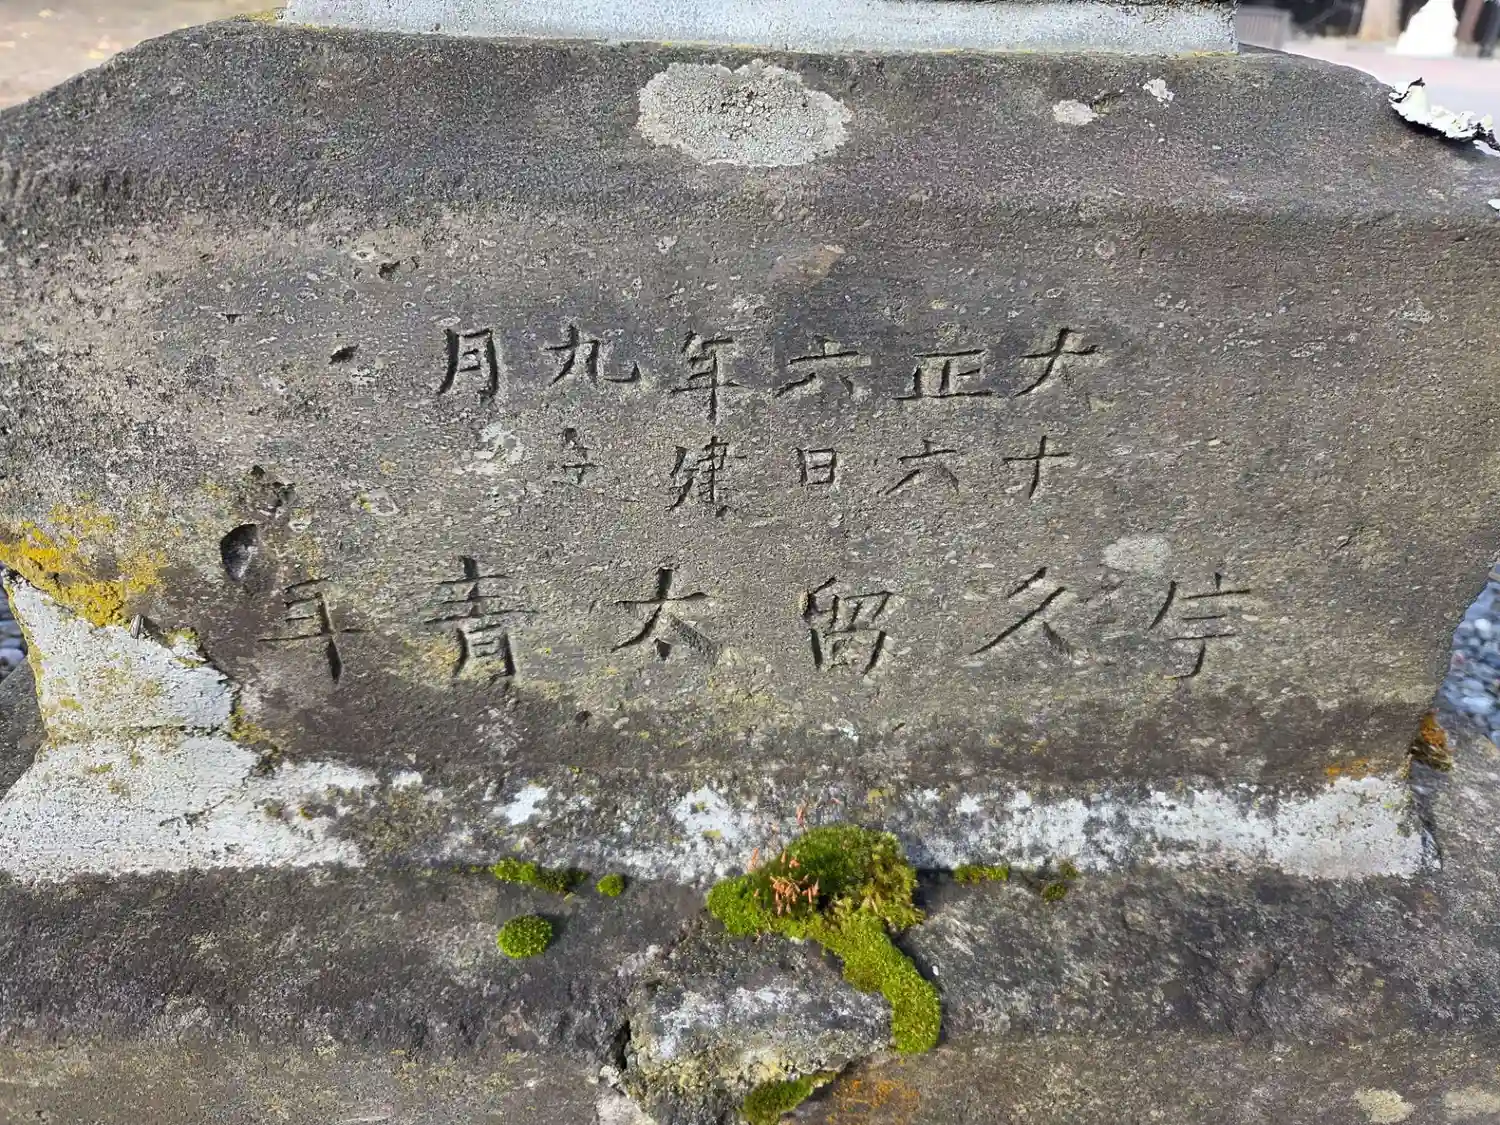 大正六年九月
十六日建之
宇久留太青年